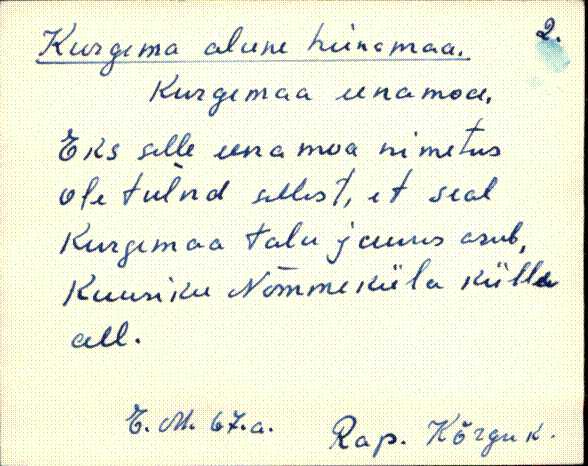 2.
Kurgema alune hiinamaa.
Kurgemaa einamoa.
Eks selle einamoa nimetus
ole tulnd sellest, et seal
Kurgemaa talu juures asub,
Kuusiku Nõmmeküla külla
all.
E. M. 67.a. Rap. Kõrguk.